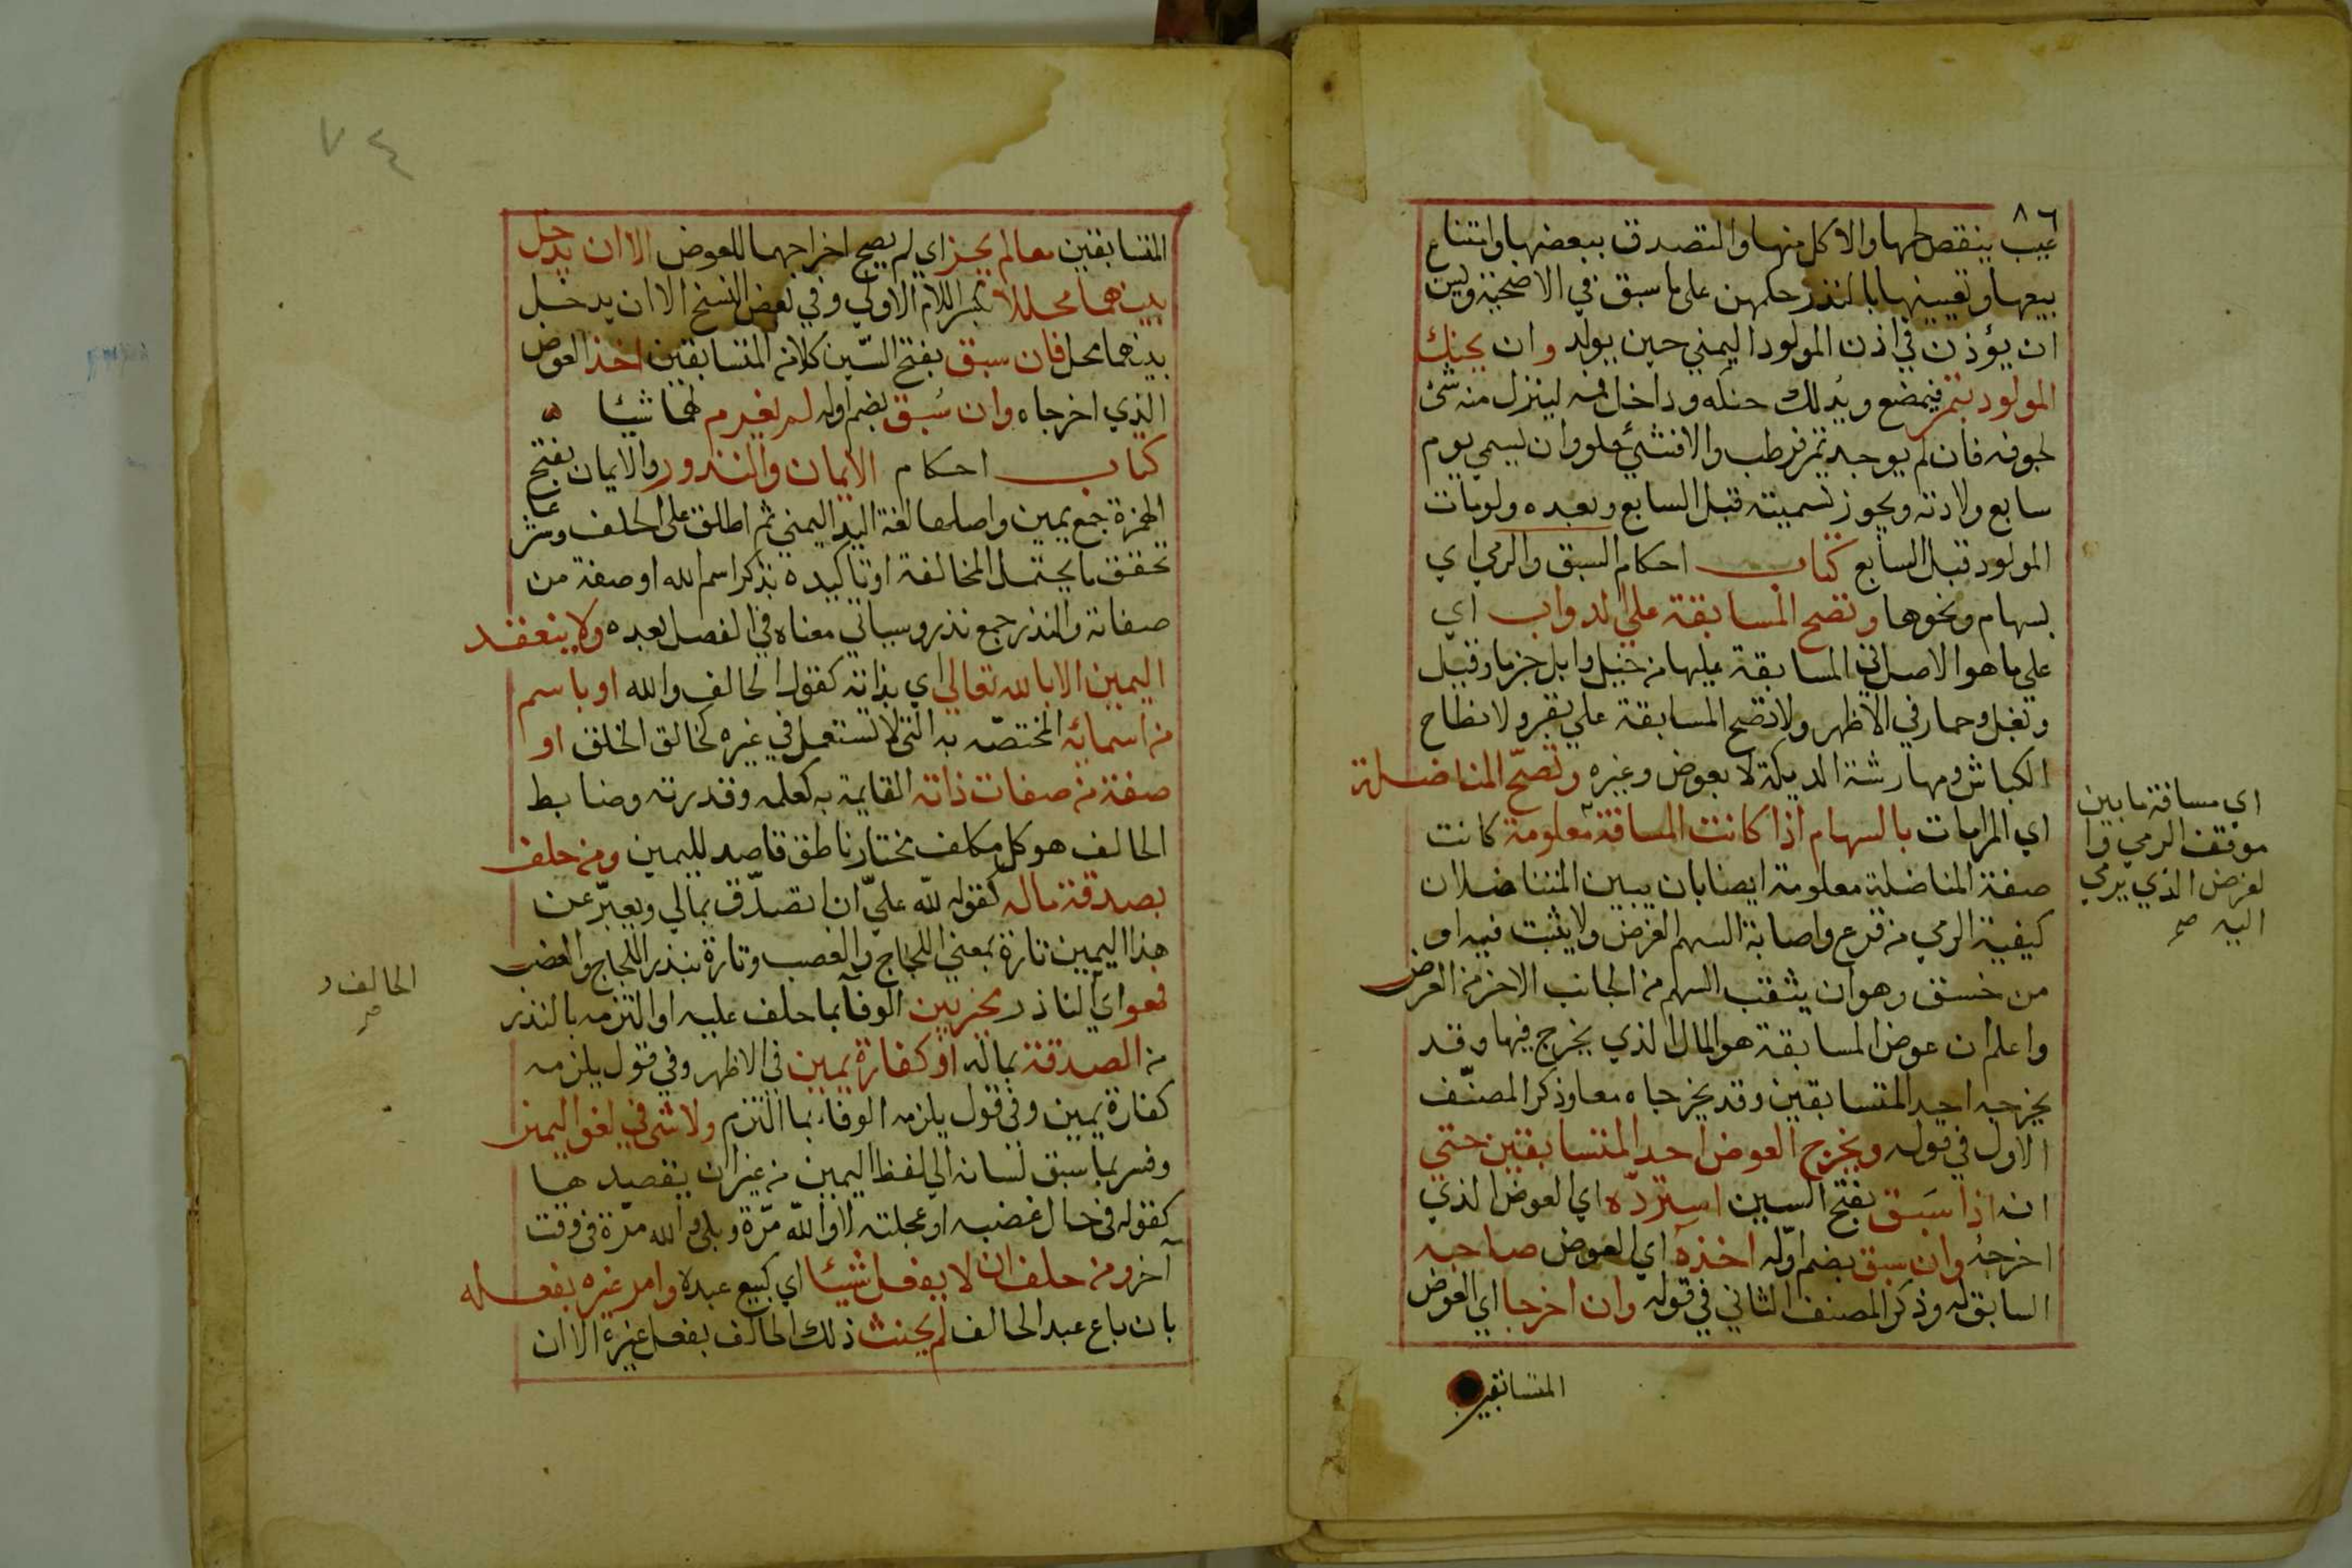 ٨٦
عيب ينقص لحمها والاكل منها والتصدق ببعضها وامتناع
بيعها وتعيينها بالنذر حكمهن على ما سبق في الاضحية ويسن
ان يؤذن في اذن المولود اليمني حين يولد وان يحنك
المولود بتمر فيمضع ويدلك حنكه وداخل فمه لينزل منه شئ
لجوفه فان لم يوجد تمر فرطب والا فشئ حلو وان يسمي يوم
سابع ولادته ويجوز تسميته قبل السابع وبعده ولو مات
المولود قبل السابع كتاب احكام السبق والرمي اي
بسهام ونحوها وتصح المسابقة علي الدواب اي
علي ما هو الاصل في المسابقة عليها من خيل وابل جزما وفيل
وبغل وحمار في الاظهر ولا تصح المسابقة علي بقر ولا نطاح
الكباش ومهارشة الديكة لا بعوض وغيره وتصحّ المناضلة
اي المرامات بالسهام اذا كانت المسافة معلومة كانت
صفة المناضلة معلومة ايضا بان يبين المتناضلان
كيفية الرمي من قرع واصابة السهم الغرض ولا يثبت فيه او
من خسق وهو ان يثقب السهم من الجانب الاخر من الغرض
واعلم ان عوض المسابقة هو المال الذي يخرج فيها وقد
يخرجه احد المتسابقين وقد يخرجاه معا وذكر المصنّف
الاول في قوله ويخرج العوض احد المتسابقين حتي
انه اذا سَبق بفتح السين استردّه اي العوض الذي
اخرجه وان سبق بضم اوّله اخذه اي العوض صاحبه
السابق له وذكر المصنف الثاني في قوله وان اخرجا اي العوض
المتسابقين
اي مسافة ما بين
موقف الرمي وا
لغرض الذي يرمي
اليه صح
٧٤
المتسابقين معا لم يجز اي لم يصح اخراجهما للعوض الا ان يدخل
بينهما محللا بكسر اللام الاولي وفي بعض النسخ الا ان يدخل
بينهما محل فان سبق بفتح السّين كلا من المتسابقين اخذ العوض
الذي اخرجاه وان سُبق بضم اوله لم يغرم لهما شيئا ه
كتاب احكام الايمان والنذور والايمان بفتح
الهمزة جمع يمين واصلها لغة اليد اليمني ثم اطلق على الحلف وشرعا
تحقق ما يحتمل المخالفة او تاكيده بذكر اسم الله او صفة من
صفاته والنذر جمع نذر وسياتي معناه في الفصل بعده ولا ينعقد
اليمين الا بالله تعالي اي بذاته كقول الحالف والله او باسم
من اسمائه المختصّه به التي لا تستعمل في غيره كخالق الخلق او
صفة من صفات ذاته القايمة به كعلمه وقدرته وضابط
الحالف هو كل مكلف مختار ناطق قاصد لليمين ومن حلف
بصدقة ماله كقوله لله عليّ ان اتصدّق بمالي ويعبّر عن
هذا اليمين تارة بمعني اللجاج والغصب وتارة بنذر اللجاج والغضب
فهو اي الناذر مخير بين الوفآ بما حلف عليه او التزمه بالنذر
من الصدقة بماله او كفارة يمين في الاظهر وفي قول يلزمه
كفارة يمين وفي قول يلزمه الوفاء بما التزم ولا شى في لغو اليمين
وفسر بما سبق لسانه الي لفظ اليمين من غير ان يقصدها
كقوله في حال غضبه او عجلته لا والله مرّة وبلى والله مرّة في وقت
آخر ومن حلف ان لا يفعل شيئا اي كبيع عبده وامر غيره بفعله
بان باع عبد الحالف لم يحنث ذلك الحالف بفعل غيره الا ان
الحالف و
صح